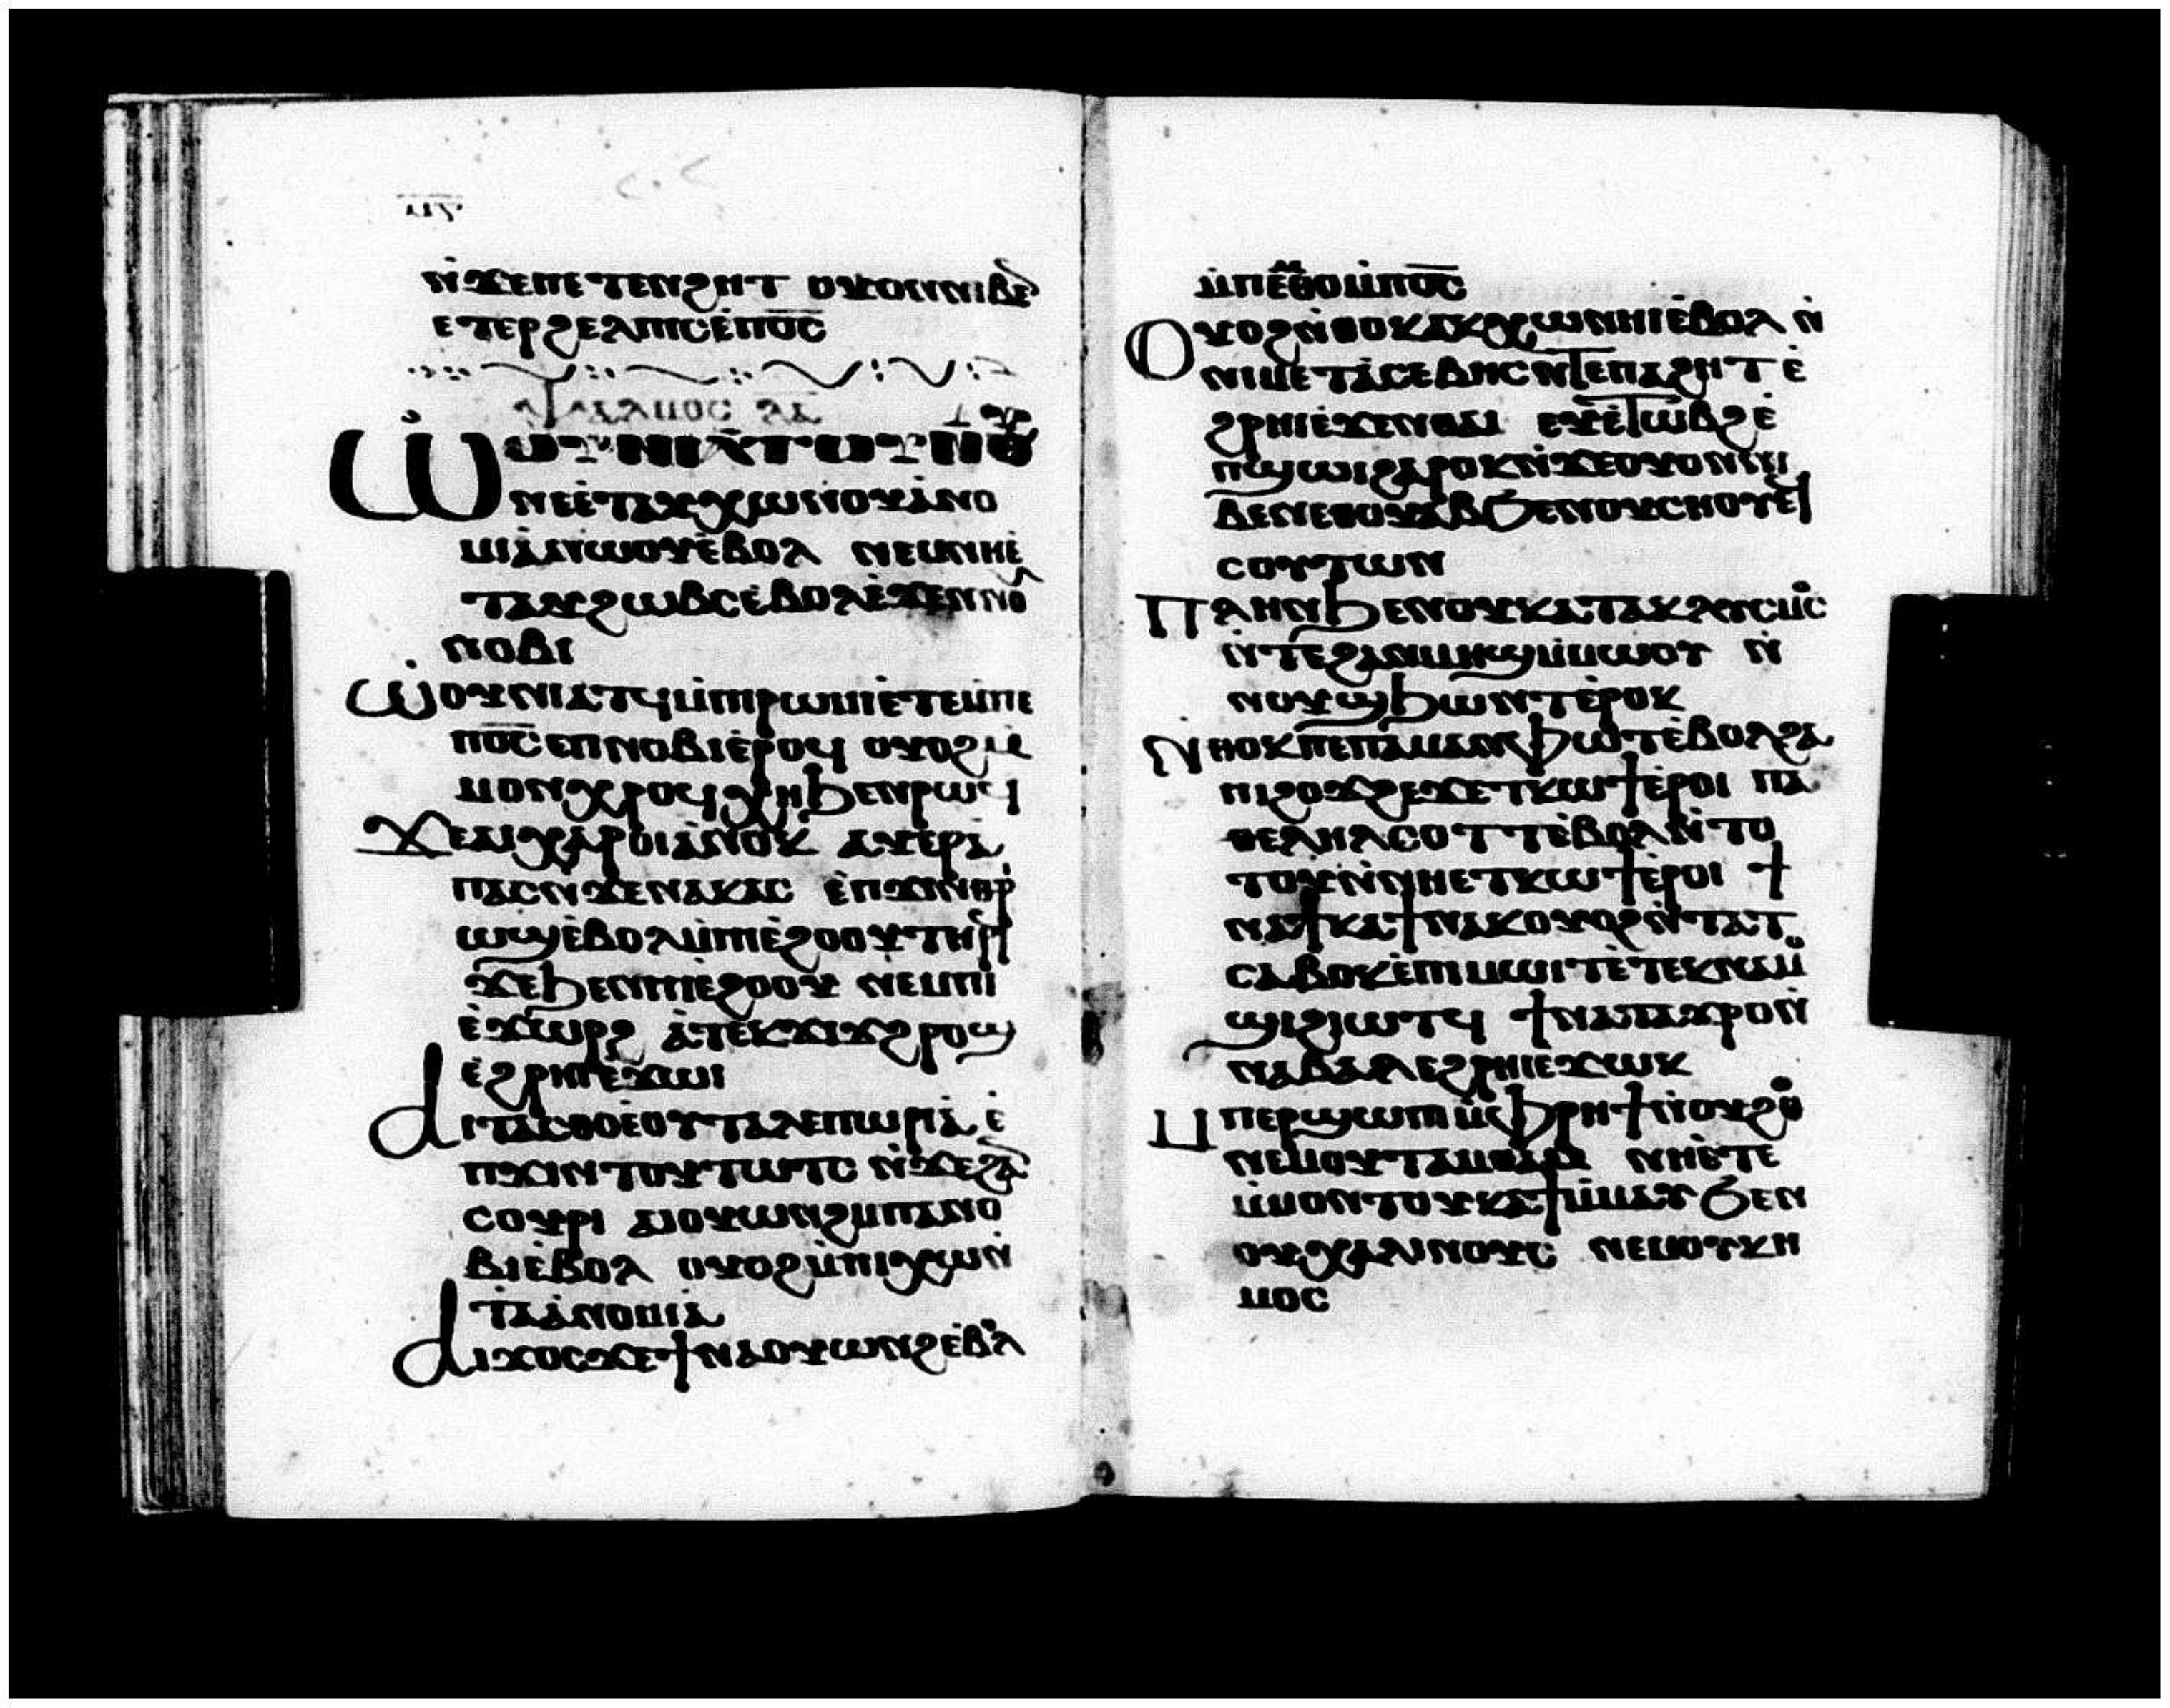 ⲛ̇ϫⲉⲡⲉⲧⲉⲛϩⲏⲧ ⲟⲩⲟⲛⲛⲓⲃⲉⲛ
ⲉⲧⲉⲣϩⲉⲗⲡⲓⲥⲉ̇ⲡⲟ̅ⲥ̅
ⲯⲁⲗⲙⲟⲥ ⲗⲁ
ⲱ̇ⲟⲩⲛⲓⲁⲧⲟⲩⲛ̇
ⲛⲉⲉ̇ⲧⲁⲩⲭⲱⲛⲟⲩⲁ̇ⲛⲟ
ⲙⲓⲁ̇ⲛⲱⲟⲩⲉ̇ⲃⲟⲗ ⲛⲉⲙⲛⲏⲉ̇
ⲧⲁⲩϩⲱⲃⲥⲉ̇ⲃⲟⲗⲉ̇ϫⲉⲛⲛⲟⲩ
ⲛⲟⲃⲓ
ⲱ̇ⲟⲩⲛⲓⲁⲧϥⲙ̇ⲡⲓⲣⲱⲙⲓⲉ̇ⲧⲉⲙ̇ⲡⲉ
ⲡⲟ̅ⲥ̅ⲉⲡⲛⲟⲃⲓⲉ̇ⲣⲟϥ ⲟⲩⲟϩⲙ̇
ⲙⲟⲛⲭⲣⲟϥⲭⲏϧⲉⲛⲣⲱϥ
ϫⲉⲁⲓⲭⲁⲣⲟⲓⲁ̇ⲛⲟⲕ ⲁⲩⲉⲣⲁ̇
ⲡⲁⲥⲛ̇ϫⲉⲛⲁⲕⲁⲥ ⲉ̇ⲡϫⲓⲛⲑⲣⲓ
ⲱϣⲉ̇ⲃⲟⲗⲙ̇ⲡⲓⲉ̇ϩⲟⲟⲩⲧⲏⲣϥ
ϫⲉϧⲉⲛⲡⲓⲉϩⲟⲟⲩ ⲛⲉⲙⲡⲓ
ⲉ̇ϫⲱⲣϩ ⲁ̇ⲧⲉⲕϫⲓϫϩⲣⲟϣ
ⲉ̇ϩⲣⲏⲓⲉ̇ϫⲱⲓ
ⲁⲓⲧⲁⲥⲑⲟⲉ̇ⲟⲩⲧⲁⲗⲉⲡⲱⲣⲓⲁ ⲉ̇
ⲡϫⲓⲛⲧⲟⲩⲧⲱⲧⲥ ⲛ̇ϫⲉϩⲁⲛ
ⲥⲟⲩⲣⲓ ⲁⲓⲟⲩⲱⲛϩⲙⲡⲁⲛⲟ
ⲃⲓⲉ̇ⲃⲟⲗ ⲟⲩⲟϩⲙ̇ⲡⲓⲭⲱⲛ̇
ⲧⲁⲁ̇ⲛⲟⲙⲓⲁ
ⲁⲓϫⲟⲥϫⲉϯⲛⲁⲟⲩⲱⲛϩⲉ̇ⲃⲟⲗ
ⲙ̇ⲡⲉⲙ̇ⲑⲟⲙ̇ⲡⲟ̅ⲥ̅
ⲟⲩⲟϩⲛ̇ⲑⲟⲕⲁⲕⲭⲱⲛⲏⲓⲉ̇ⲃⲟⲗ ⲛ̇
ⲛⲓⲙⲉⲧⲁ̇ⲥⲉⲃⲏⲥⲛ̇ⲧⲉⲡⲁϩⲏⲧ ⲉ̇
ϩⲣⲏⲓⲉ̇ϫⲉⲛⲑⲁⲓ ⲉⲩⲉ̇ⲧⲱⲃϩ ⲉ̇
ⲡϣⲱⲓϩⲁⲣⲟⲕⲛ̇ϫⲉⲟⲩⲟⲛⲛⲓ
ⲃⲉⲛⲉⲑⲟⲩⲁⲃϧⲉⲛⲟⲩⲥⲏⲟⲩⲉϥ
ⲥⲟⲩⲧⲱⲛ
ⲡⲗⲏⲛϧⲉⲛⲟⲩⲕⲁⲧⲁⲕⲗⲩⲥⲙⲟⲥ
ⲛ̇ⲧⲉϩⲁⲛⲙⲏϣⲙ̇ⲙⲱⲟⲩ ⲛ̇
ⲛⲟⲩϣϧⲱⲛⲧⲉ̇ⲣⲟⲕ
ⲛ̇ⲑⲟⲕⲡⲉⲡⲁⲙⲁⲛⲫⲱⲧⲉ̇ⲃⲟⲗϩⲁ
ⲡⲓϩⲟϫϩⲉϫⲉⲧⲕⲱϯⲉ̇ⲣⲟⲓ ⲡⲁ
ⲑⲉⲗⲏⲗⲥⲟⲧⲧⲉ̇ⲃⲟⲗⲛ̇ⲧⲟ
ⲧⲟⲩⲛ̇ⲛⲏⲉⲧⲕⲱϯⲉ̇ⲣⲟⲓ ϯ
ⲛⲁϯⲕⲁϯⲛⲁⲕⲟⲩⲟϩⲛ̇ⲧⲁⲧ
ⲥⲁⲃⲟⲕⲉ̇ⲡⲓⲙⲱⲓⲧⲉ̇ⲧⲉⲕⲛⲁⲙⲟ
ϣⲓϩⲓⲱⲧϥ ϯⲛⲁⲧⲁϫⲣⲟⲛ̇
ⲛⲁⲃⲁⲗⲉϩⲣⲏⲓⲉϫⲱⲕ
ⲙⲡⲉⲣϣⲱⲡⲓⲙ̇ⲫⲣⲏϯⲛ̇ⲟⲩϩⲑⲟ
ⲛⲉⲙⲟⲩⲙⲁⲥⲡⲟⲣⲕ ⲛⲏⲉ̇ⲧⲉ
ⲙ̇ⲙⲟⲛⲧⲟⲩⲕⲁϯⲙ̇ⲙⲁⲩ ϧⲉⲛ
ⲟⲩⲭⲁⲗⲓⲛⲟⲩⲥ ⲛⲉⲙⲟⲩⲕⲏ
ⲙⲟⲥ